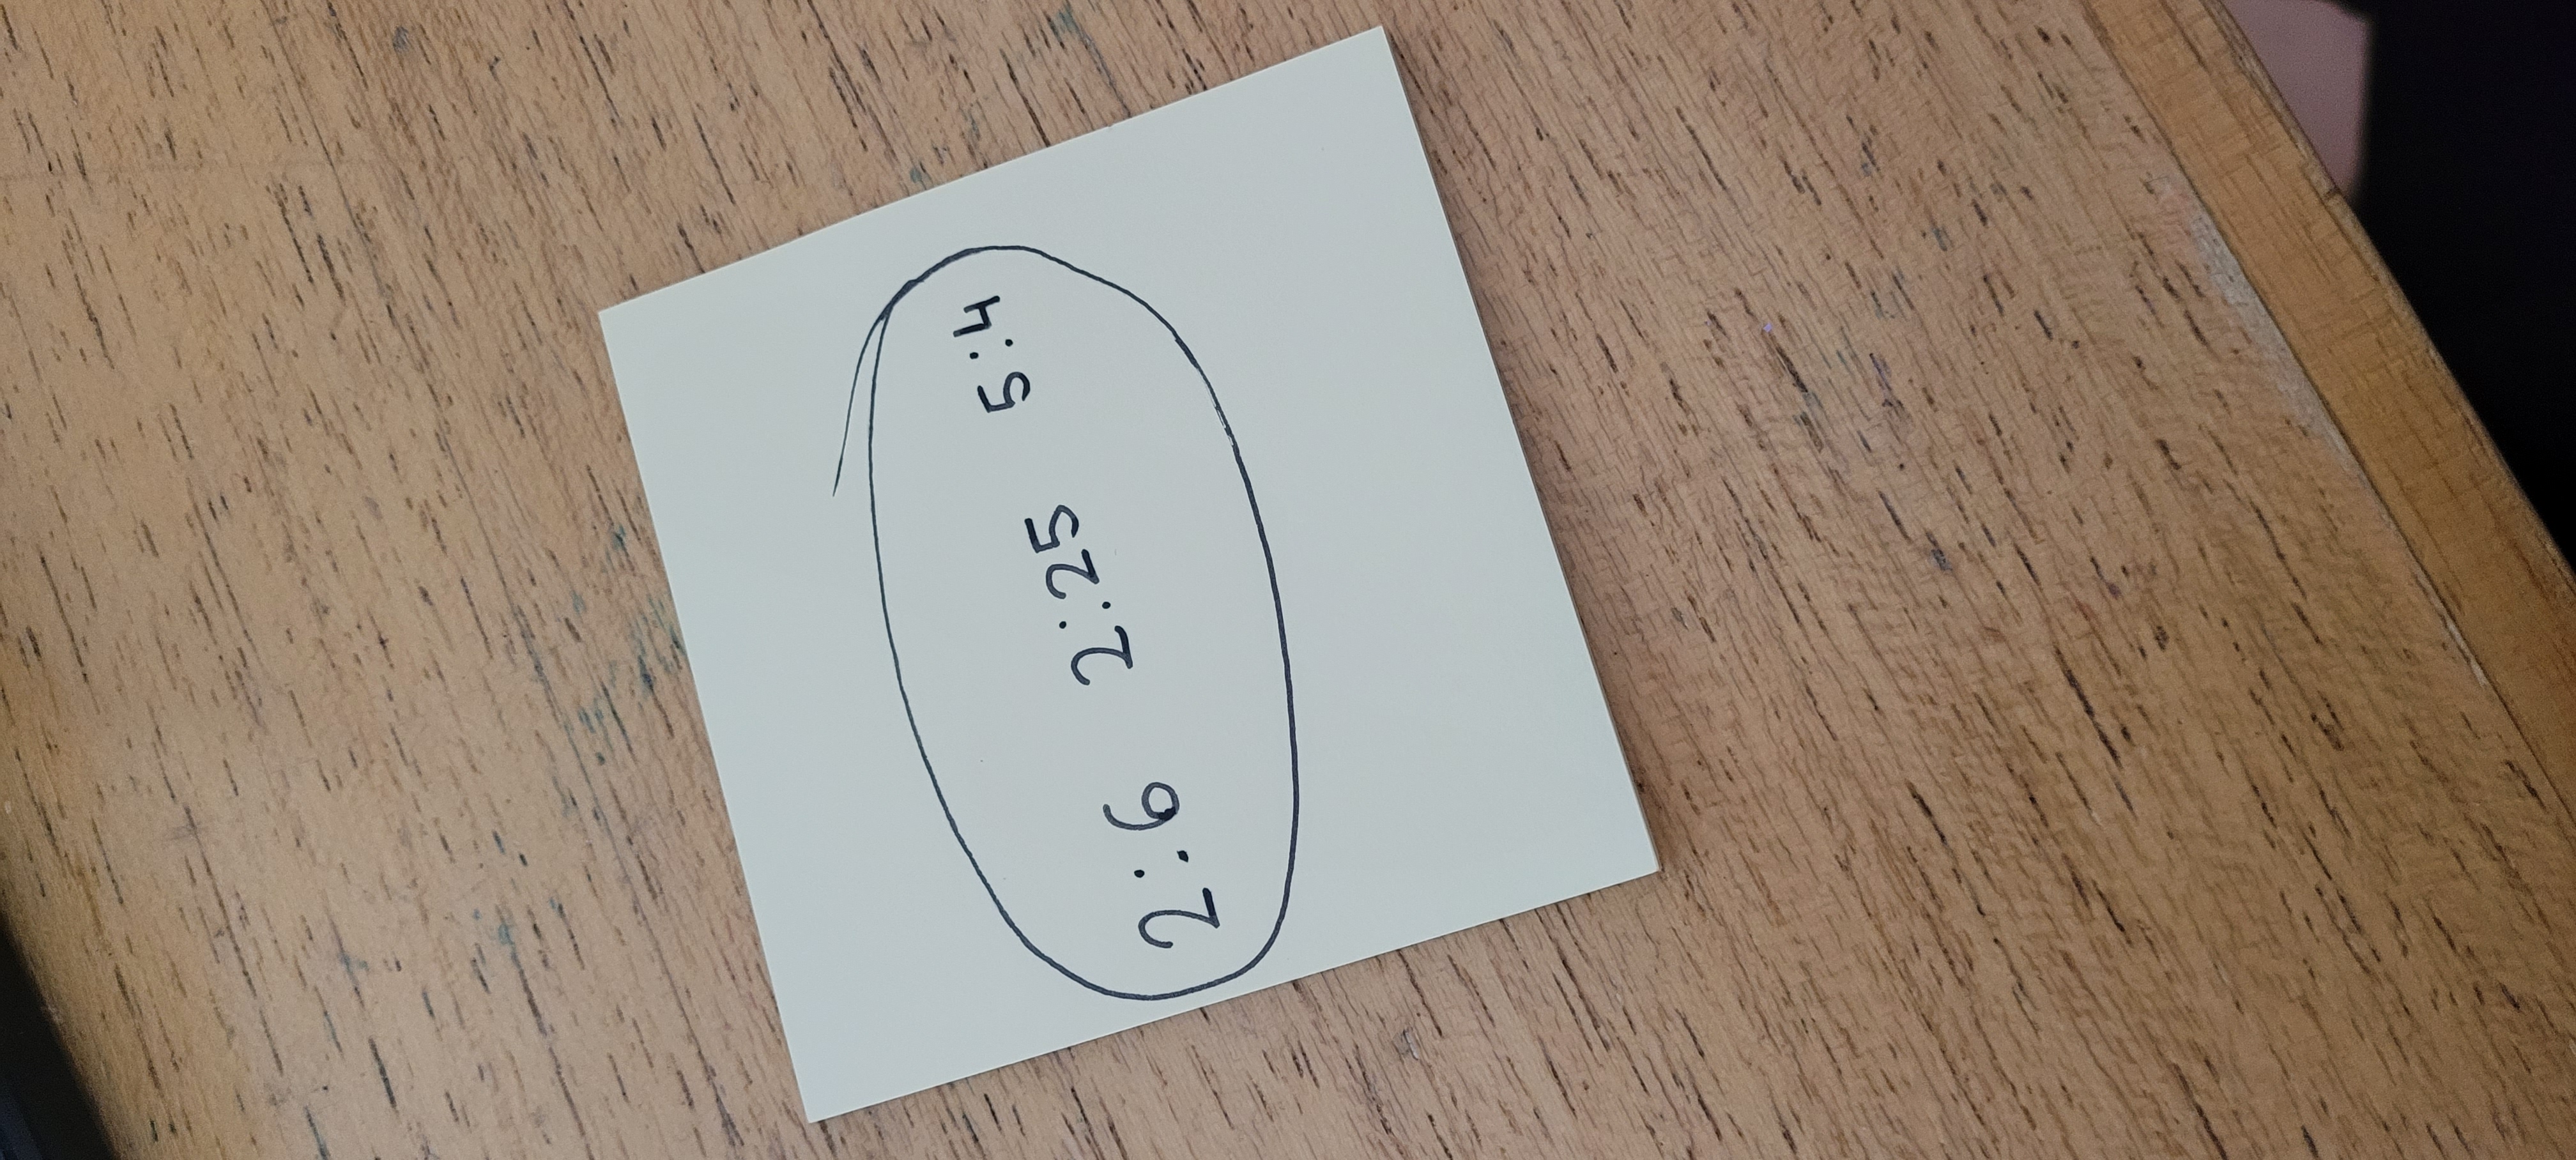 2:6 2:25 5:4